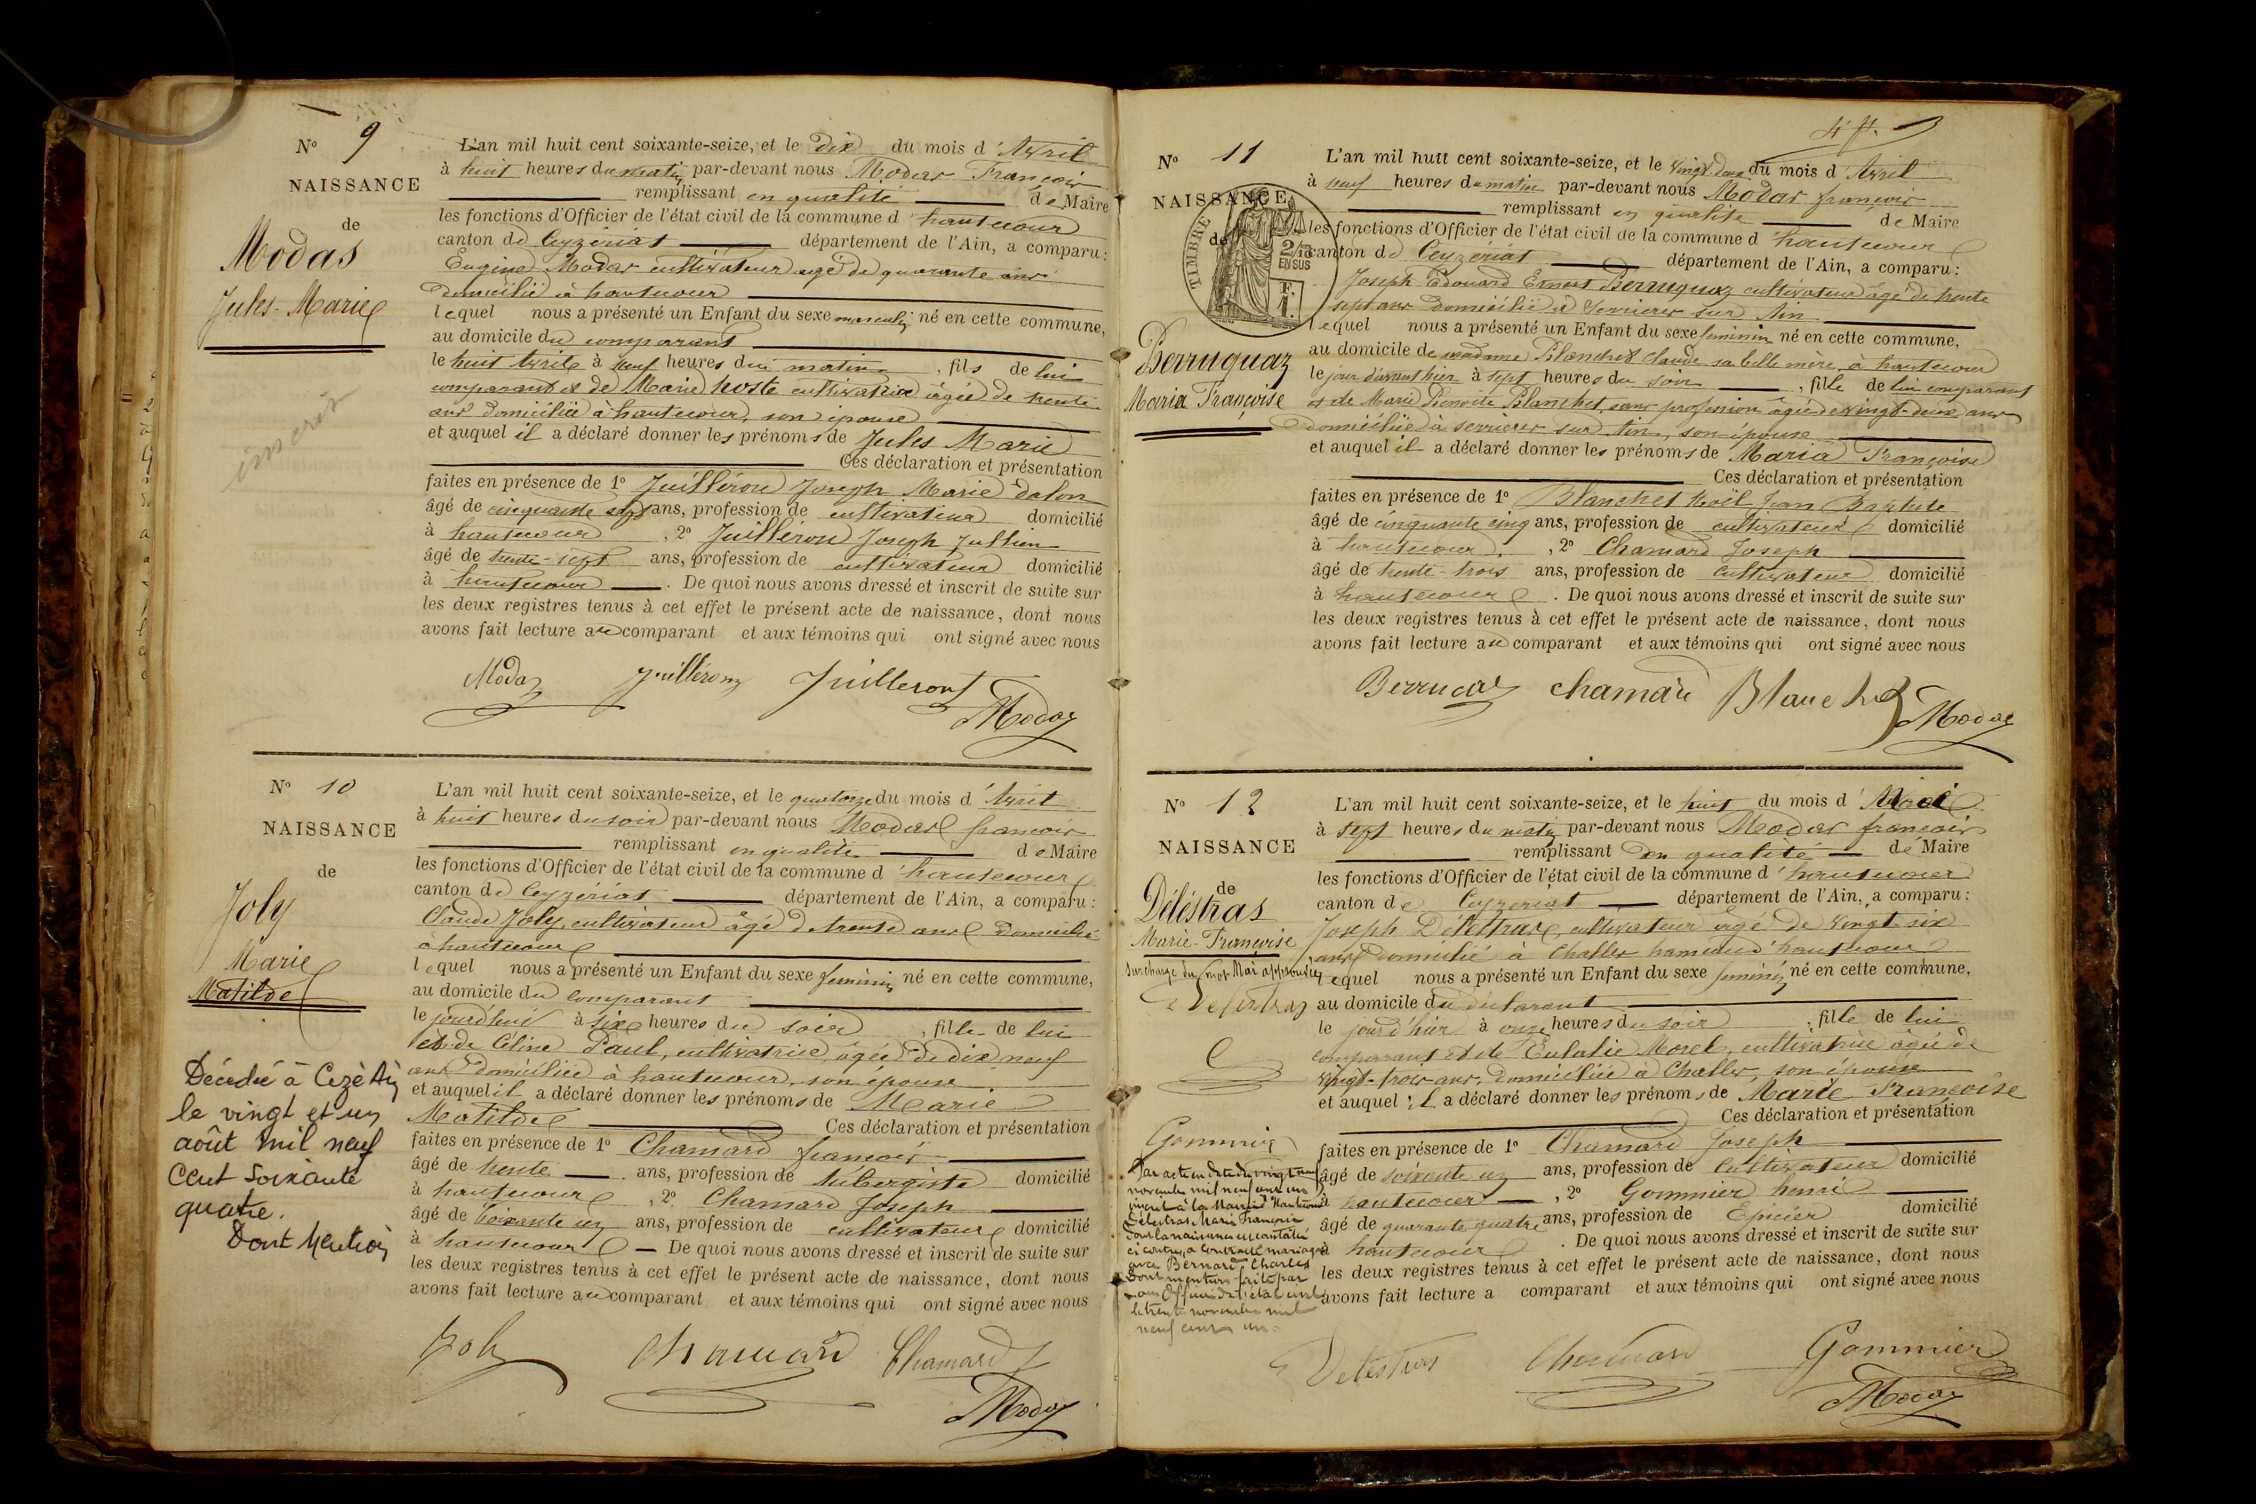 Nº 9
NAISSANCE
de
Modas
Jules-Marie
inscrit
L'an mil huit cent soixante-seize, et le dix du mois d'Avril
à huit heures du matin par-devant nous Modas François
remplissant en qualité de Maire
les fonctions d'Officier de l'état civil de la commune d'hautecour
canton de Ceyzériat département de l'Ain, a comparu:
Eugène Modas cultivateur agé de quarante ans
domicilié à hautecour
lequel nous a présenté un Enfant du sexe masculin né en cette commune,
au domicile du comparant
le huit Avril à neuf heures du matin, fils de lui
comparant et de Marie hoste cultivatrice âgée de trente
ans domiciliée à hautecour, son épouse
et auquel il a déclaré donner les prénoms de Jules Marie
Ces déclaration et présentation
faites en présence de 1º Juilléron Joseph Marie dolon
âgé de cinquante sept ans, profession de cultivateur domicilié
à hautecour, 2º Juilléron Joseph Jullien
âgé de trente-sept ans, profession de cultivateur domicilié
à hautecour. De quoi nous avons dressé et inscrit de suite sur
les deux registres tenus à cet effet le présent acte de naissance, dont nous
avons fait lecture au comparant et aux témoins qui ont signé avec nous
Modas Juilléron Juilleront
Modas
Nº 10
NAISSANCE
de
Joly
Marie
Matilde
Décédée à Cezériat
le vingt et un
août mil neuf
cent soixante
quatre.
Dont Mention
L'an mil huit cent soixante-seize, et le quatorze du mois d'Avril
à huit heures du soir par-devant nous Modas françois
remplissant en qualité de Maire
les fonctions d'Officier de l'état civil de la commune d'hautecour
canton de Ceyzériat département de l'Ain, a comparu:
Claude Joly, cultivateur âgé de trente ans Domicilié
à hautecour
lequel nous a présenté un Enfant du sexe féminin né en cette commune,
au domicile du comparant
le jourd'hui à six heures du soir, fille de lui
et de Céline Paul, cultivatrice âgée de dix neuf
ans domiciliée à hautecour, son épouse
et auquel il a déclaré donner les prénoms de Marie
Matilde Ces déclaration et présentation
faites en présence de 1º Chamard françois
âgé de trente ans, profession de Aubergiste domicilié
à hautecour, 2º Chamard Joseph
âgé de soixante un ans, profession de cultivateur domicilié
à hautecour — De quoi nous avons dressé et inscrit de suite sur
les deux registres tenus à cet effet le présent acte de naissance, dont nous
avons fait lecture au comparant et aux témoins qui ont signé avec nous
Joly Chamard Chamard
Modas
Nº 11
NAISSANCE
de
TIMBRE
2/10
EN SUS
F.
1.
Berruquaz
Maria Françoise
L'an mil huit cent soixante-seize, et le vingt-deux du mois d'Avril
à neuf heures du matin par-devant nous Modas françois
remplissant en qualité de Maire
les fonctions d'Officier de l'état civil de la commune d'hautecour
canton de Ceyzériat département de l'Ain, a comparu:
Joseph Edouard Ernest Berruquaz cultivateur âgé de trente
sept ans domicilié à Serrières sur Ain
lequel nous a présenté un Enfant du sexe féminin né en cette commune,
au domicile de madame Blanchet Claude sa belle mère à hautecour
le jour d'avant hier à sept heures du soir, fille de lui comparant
et de Marie Benoite Blanchet, sans profession âgée de vingt-deux ans
domiciliée à serrières sur Ain, son épouse
et auquel il a déclaré donner les prénoms de Maria Françoise
Ces déclaration et présentation
faites en présence de 1º Blanchet Noël Jean Baptiste
âgé de cinquante cinq ans, profession de cultivateur domicilié
à hautecour, 2º Chamard Joseph
âgé de trente-trois ans, profession de cultivateur domicilié
à hautecour. De quoi nous avons dressé et inscrit de suite sur
les deux registres tenus à cet effet le présent acte de naissance, dont nous
avons fait lecture au comparant et aux témoins qui ont signé avec nous
Berrucaz chamard Blanchet
Modas
Nº 12
NAISSANCE
de
Déléstras
Marie-Françoise
Surcharge du mot Mai approuvée
Delestras
Gommier
Par acte en date du vingt neuf
novembre mil neuf cent un
inscrit à la Mairie d'Hautecour
Délestras Marie Françoise
dont la naissance est constatée
ci contre, a contracté mariage
avec Bernard Charles
Dont mention faite par
nous Officier de l'état civil
le trente novembre mil
neuf cent un.
L'an mil huit cent soixante-seize, et le huit du mois d'Mai
à sept heures du matin par-devant nous Modas françois
remplissant en qualité de Maire
les fonctions d'Officier de l'état civil de la commune d'hautecour
canton de Ceyzeriat département de l'Ain, a comparu:
Joseph Délestras, cultivateur agé de vingt six
ans domicilié à Challes hameau d'hautecour
lequel nous a présenté un Enfant du sexe féminin né en cette commune,
au domicile du déclarant
le jour d'hier à onze heures du soir, fille de lui
comparant et de Eulalie Morel, cultivatrice âgée de
vingt-trois ans, Domiciliée à Challes, son épouse
et auquel il a déclaré donner les prénoms de Marie Françoise
Ces déclaration et présentation
faites en présence de 1º Chamard Joseph
âgé de soixante un ans, profession de Cultivateur domicilié
à hautecour, 2º Gommier henri
âgé de quarante quatre ans, profession de Epicier domicilié
à hautecour. De quoi nous avons dressé et inscrit de suite sur
les deux registres tenus à cet effet le présent acte de naissance, dont nous
avons fait lecture a comparant et aux témoins qui ont signé avec nous
Delestras Chamard Gommier
Modas